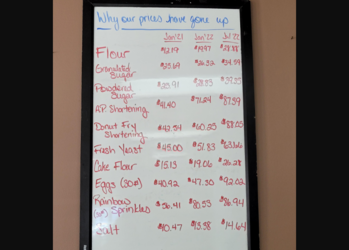 Why our prices have gone up
Jan '21 Jan '22 Jul '22
Flour $12.19 $19.97 $28.88
Granulated
Sugar $25.69 $26.32 $34.59
Powdered
Sugar $23.91
A.P. Shortening $41.40 $71.24 $87.59
Donut Fry
Shortening $42.54 $60.25 $88.05
Fresh Yeast $45.00 $51.83 $63.66
Cake Flour $15.13 $19.06 $26.28
Eggs $40.92 $47.30 $92.02
Rainbow
Sprinkles $56.41 $80.53 $86.94
Salt $10.47 $13.58 $14.64